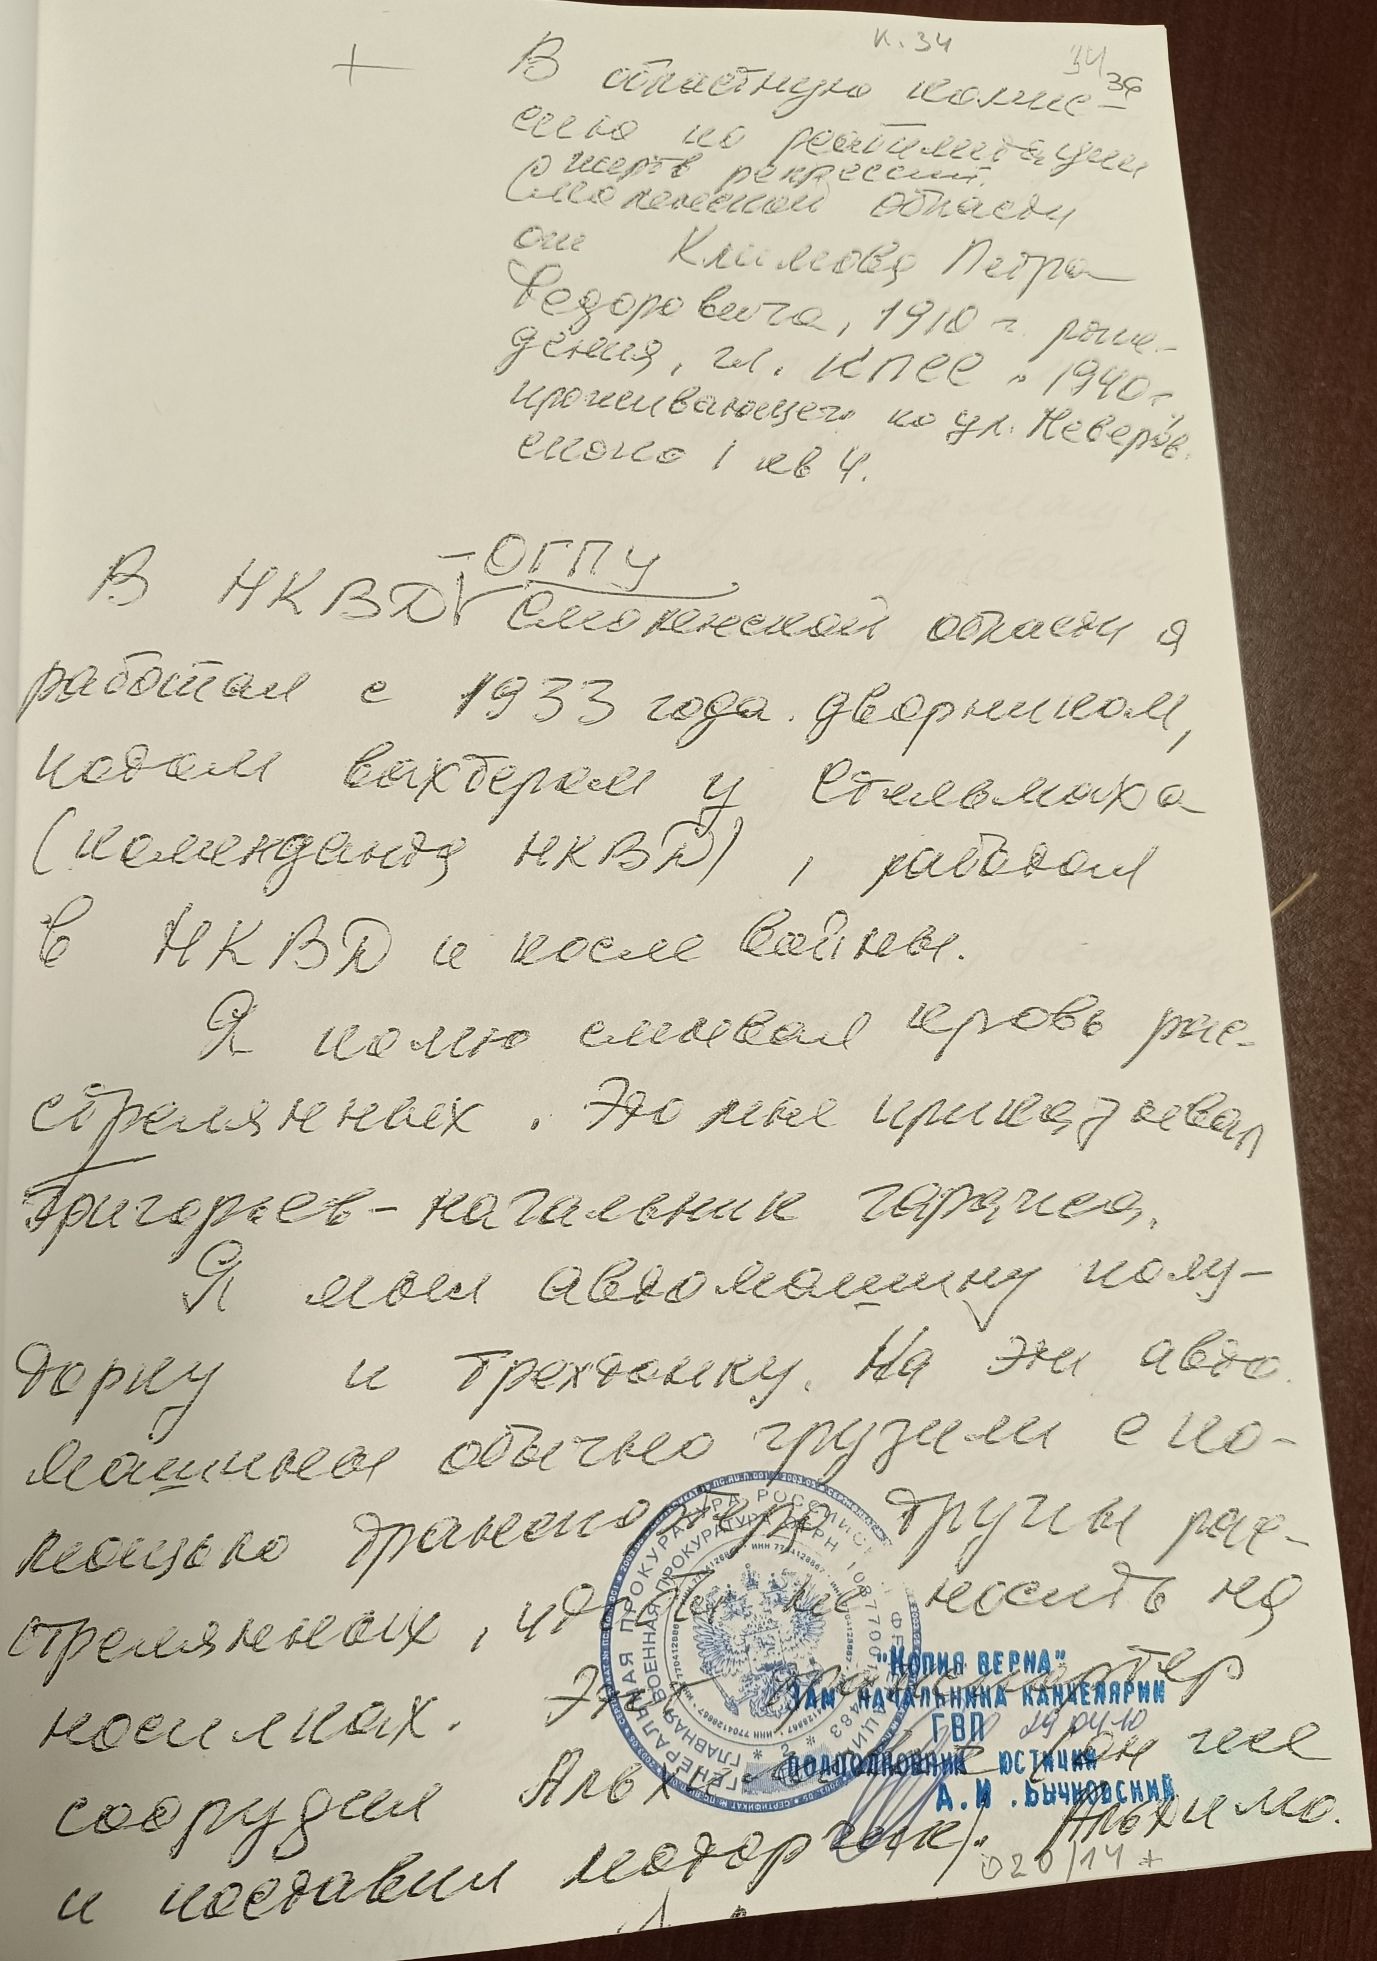 к. 34
34 34
В областную комис-
сию по реабилитации
жертв репрессий.
Смоленской области
от Климова Петра
Федоровича, 1910 г. рож-
дения, чл. КПСС с 1940 г,
проживающего по ул. Неверов.
ского 1 кв 4.
- ОГПУ
В НКВД Смоленской области я
работал с 1933 года. дворником,
потом вахтером у Стельмаха
(коменданта НКВД), работал
в НКВД и после войны.
Я помню смывал кровь рас-
стрелянных. Это мне приказывал
Григорьев - начальник гаража.
Я мыл автомашину полу-
торку и трехтонку. На эти авто
машины обычно грузили с по-
мощью транспортера трупы рас-
стрелянных, чтобы не носить на
носилках. Этот транспортер
соорудил (он же
и поставил моторчик). Альхимо.
ГЕНЕРАЛЬНАЯ ПРОКУРАТУРА РОССИЙСКОЙ ФЕДЕРАЦИИ
ГЛАВНАЯ ВОЕННАЯ ПРОКУРАТУРА
"КОПИЯ ВЕРНА"
ЗАМ НАЧАЛЬНИКА КАНЦЕЛЯРИИ
ГВП
ПОДПОЛКОВНИК ЮСТИЦИИ
А.И. БЫЧКОВСКИЙ
020/14 *